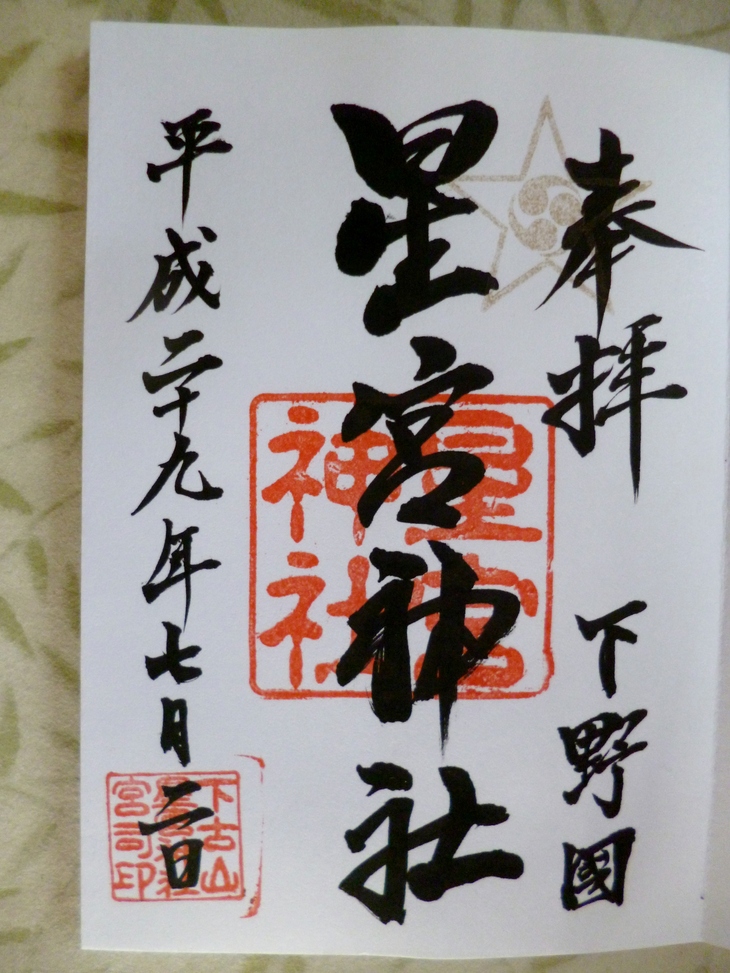 奉拝
下野國
星宮神社
星宮神社
平成二十九年七月二日
下古山
星宮神社
宮司印